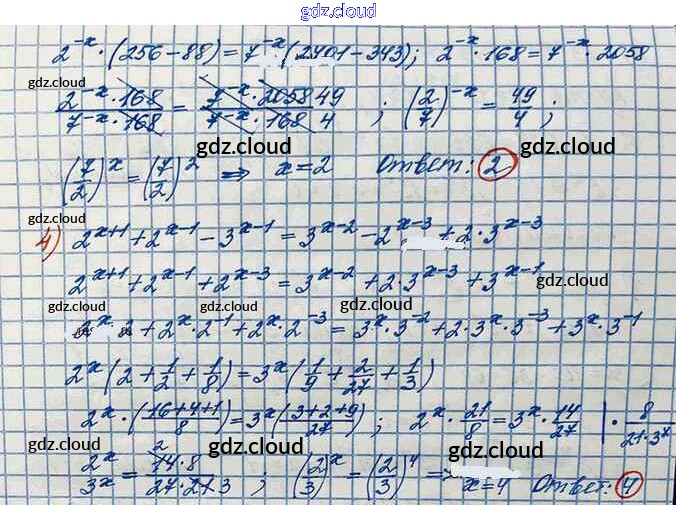 gdz.cloud
2^{-x}·(256-88)=7^{-x}(2401-343); 2^{-x}·168=7^{-x}·2058
gdz.cloud gdz.cloud gdz.cloud
\frac{2^{-x}·168}{7^{-x}·168}=\frac{7^{-x}·2058 49}{7^{-x}·168 4}; (\frac{2}{7})^{-x}=\frac{49}{4};
gdz.cloud gdz.cloud
(\frac{7}{2})^x=(\frac{7}{2})^2 ⇒ x=2 Ответ: 2
gdz.cloud gdz.cloud
4) 2^{x+1}+2^{x-1}-3^{x-1}=3^{x-2}-2^{x-3}+2·3^{x-3}
gdz.cloud gdz.cloud
2^{x+1}+2^{x-1}+2^{x-3}=3^{x-2}+2·3^{x-3}+3^{x-1}
gdz.cloud gdz.cloud gdz.cloud gdz.cloud
2^x·2+2^x·2^{-1}+2^x·2^{-3}=3^x·3^{-2}+2·3^x·3^{-3}+3^x·3^{-1}
2^x(2+\frac{1}{2}+\frac{1}{8})=3^x(\frac{1}{9}+\frac{2}{27}+\frac{1}{3})
2^x·(\frac{16+4+1}{8})=3^x(\frac{3+2+9}{27}); 2^x·\frac{21}{8}=3^x·\frac{14}{27} |·\frac{8}{21·3^x}
gdz.cloud gdz.cloud gdz.cloud gdz.cloud
\frac{2^x}{3^x}=\frac{2 14·8}{27·21·3}; (\frac{2}{3})^x=(\frac{2}{3})^4 ⇒ x=4 Ответ: 4
gdz.cloud